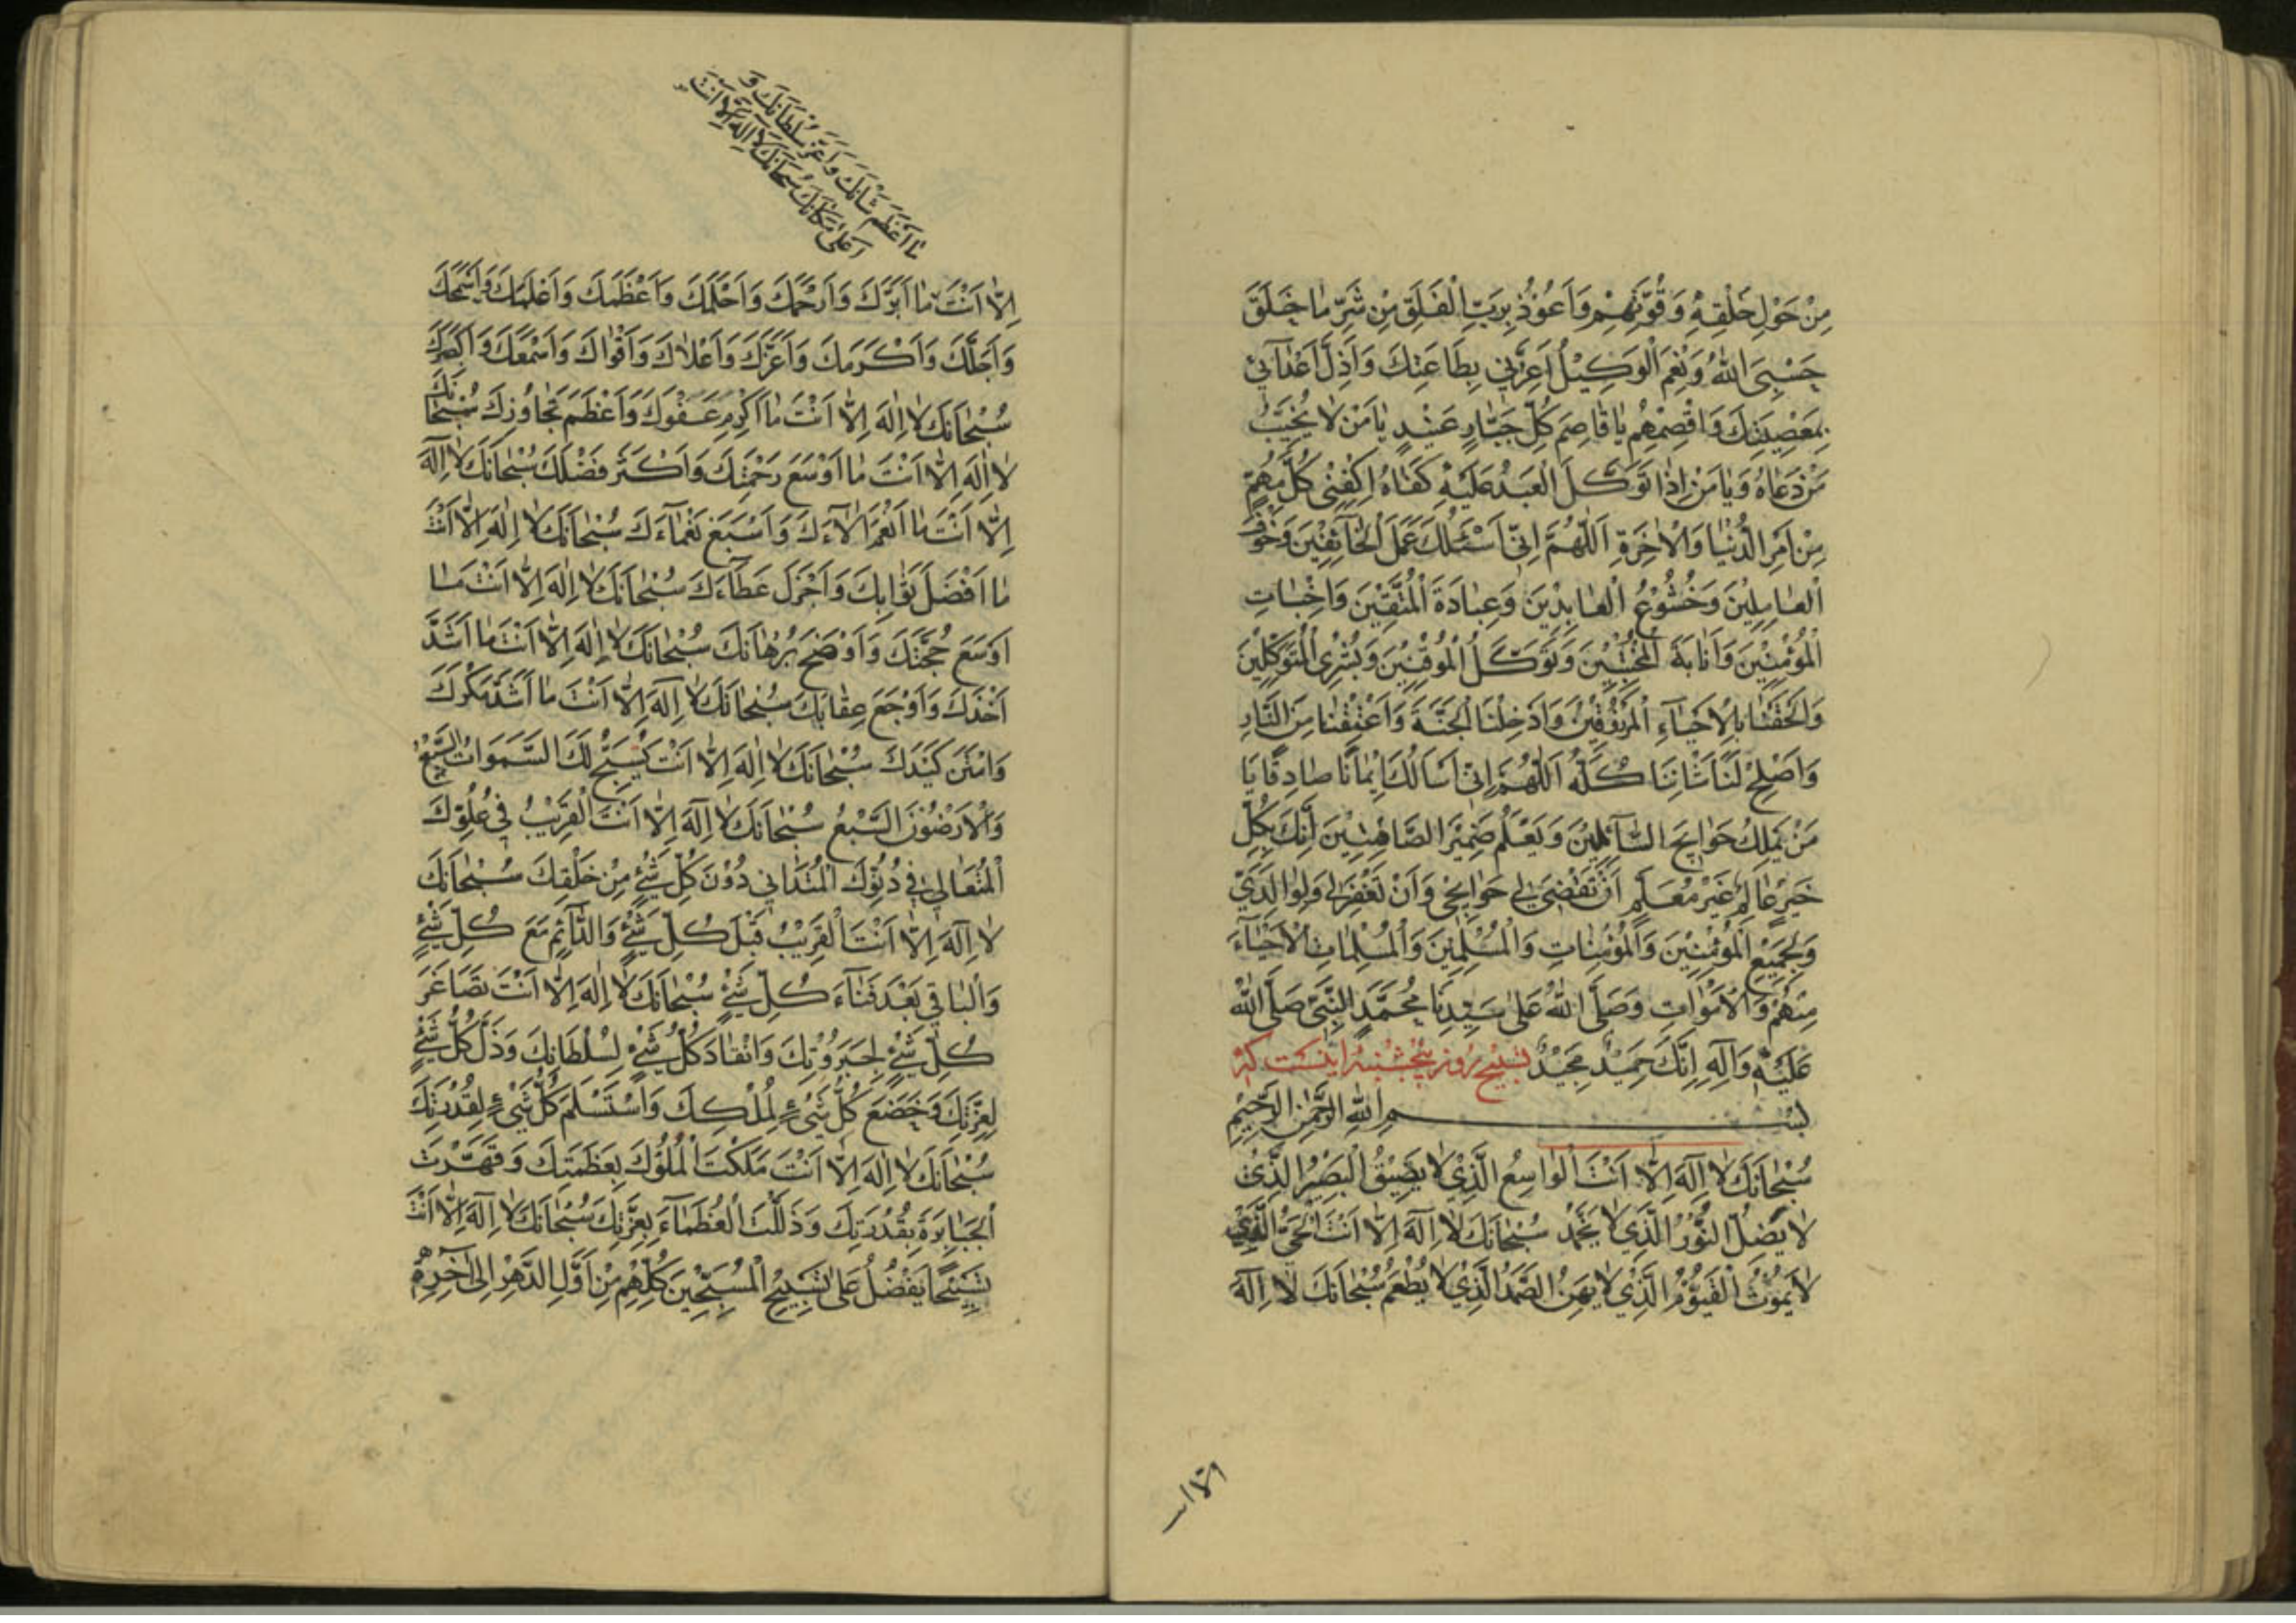 مِنْ حَوْلِ خَلْقِهِ وَقُوَّتِهِمْ وَاَعُوْذُ بِرَبِّ الْفَلَقِ مِنْ شَرِّ مٰا خَلَقَ
حَسْبِیَ اللّٰهُ وَنِعْمَ الْوَكِيْلُ اَعِزَّنِي بِطَاعَتِكَ وَاَذِلَّ اَعْدٰآئِي
بِمَعْصِيَتِكَ وَاقْصِمْهُمْ يٰا قٰاصِمَ كُلِّ جَبّٰارٍ عَنِيْدٍ يٰا مَنْ لٰا يُخَيِّبُ
مَنْ دَعٰاهُ وَيٰا مَنْ اِذٰا تَوَكَّلَ الْعَبْدُ عَلَيْهِ كَفٰاهُ اِكْفِنِي كُلَّ مُهِمٍّ
مِنْ اَمْرِ الدُّنْيٰا وَالْاٰخِرَةِ اَللّٰهُمَّ اِنِّي اَسْئَلُكَ عَمَلَ الْخٰآئِفِيْنَ وَخَوْفَ
الْعٰامِلِيْنَ وَخُشُوْعَ الْعٰابِدِيْنَ وَعِبٰادَةَ الْمُتَّقِيْنَ وَاِخْبٰاتَ
الْمُؤْمِنِيْنَ وَاَنٰابَةَ الْمُخْبِتِيْنَ وَتَوَكُّلَ الْمُوْقِنِيْنَ وَبُشْرَی الْمُتَوَكِّلِيْنَ
وَاَلْحِقْنٰا بِالْاَحْيٰآءِ الْمَرْزُوْقِيْنَ وَاَدْخِلْنَا الْجَنَّةَ وَاَعْتِقْنٰا مِنَ النّٰارِ
وَاَصْلِحْ لَنٰا شَاْنَنَا كُلَّهُ اَللّٰهُمَّ اِنِّي اَسْاَلُكَ اِيْمٰانًا صٰادِقًا يَا
مَنْ يَمْلِكُ حَوٰائِجَ السّٰآئِلِيْنَ وَيَعْلَمُ ضَمِيْرَ الصّٰامِتِيْنَ اِنَّكَ بِكُلِّ
خَيْرٍ عٰالِمٌ غَيْرُ مُعَلَّمٍ اَنْ تَقْضِيَ لِي حَوٰائِجِي وَاَنْ تَغْفِرَ لِي وَلِوٰالِدَيَّ
وَلِجَمِيْعِ الْمُؤْمِنِيْنَ وَالْمُؤْمِنٰاتِ وَالْمُسْلِمِيْنَ وَالْمُسْلِمٰاتِ الْاَحْيٰآءِ
مِنْهُمْ وَالْاَمْوٰاتِ وَصَلَّی اللّٰهُ عَلٰی سَيِّدِنٰا مُحَمَّدٍ النَّبِيِّ صَلَّی اللّٰهُ
عَلَيْهِ وَاٰلِهِ اِنَّكَ حَمِيْدٌ مَجِيْدٌ تسبیح روز پنجشنبه اینست که
بسم الله الرحمن الرحيم
سُبْحٰانَكَ لٰا اِلٰهَ اِلّٰا اَنْتَ الْوٰاسِعُ الَّذِيْ لٰا يَضِيْقُ الْبَصِيْرُ الَّذِيْ
لٰا يَضِلُّ النُّوْرُ الَّذِي لٰا يَخْمُدُ سُبْحٰانَكَ لٰا اِلٰهَ اِلّٰا اَنْتَ الْحَيُّ الَّذِيْ
لٰا يَمُوْتُ الْقَيُّوْمُ الَّذِيْ لٰا يَهِنُ الصَّمَدُ الَّذِيْ لٰا يُطْعَمُ سُبْحٰانَكَ لٰا اِلٰهَ
الّا انت
مٰا اَعْظَمَ شَانَكَ وَاَعَزَّ سُلْطَانَكَ وَ
اَعْلٰی مَكَانَكَ سُبْحَانَكَ لٰا اِلٰهَ اِلّٰا اَنْتَ
اِلّٰا اَنْتَ مٰا اَبَرَّكَ وَاَرْحَمَكَ وَاَحْلَمَكَ وَاَعْظَمَكَ وَاَعْلَمَكَ وَاَسْمَحَكَ
وَاَجَلَّكَ وَاَكْرَمَكَ وَاَعَزَّكَ وَاَعْلٰاكَ وَاَقْوٰاكَ وَاَسْمَعَكَ وَاَبْصَرَكَ
سُبْحٰانَكَ لٰا اِلٰهَ اِلّٰا اَنْتَ مٰا اَكْرَمَ عَفْوَكَ وَاَعْظَمَ تَجٰاوُزَكَ سُبْحٰانَكَ
لٰا اِلٰهَ اِلّٰا اَنْتَ مٰا اَوْسَعَ رَحْمَتَكَ وَاَكْثَرَ فَضْلَكَ سُبْحٰانَكَ لٰا اِلٰهَ
اِلّٰا اَنْتَ مٰا اَنْعَمَ اٰلٰآءَكَ وَاَسْبَغَ نَعْمٰآءَكَ سُبْحٰانَكَ لٰا اِلٰهَ اِلّٰا اَنْتَ
مٰا اَفْضَلَ ثَوٰابَكَ وَاَجْزَلَ عَطٰآءَكَ سُبْحٰانَكَ لٰا اِلٰهَ اِلّٰا اَنْتَ مٰا
اَوْسَعَ حُجَّتَكَ وَاَوْضَحَ بُرْهٰانَكَ سُبْحٰانَكَ لٰا اِلٰهَ اِلّٰا اَنْتَ مٰا اَشَدَّ
اَخْذَكَ وَاَوْجَعَ عِقٰابَكَ سُبْحٰانَكَ لٰا اِلٰهَ اِلّٰا اَنْتَ مٰا اَشَدَّ مَكْرَكَ
وَاَمْتَنَ كَيْدَكَ سُبْحٰانَكَ لٰا اِلٰهَ اِلّٰا اَنْتَ يُسَبِّحُ لَكَ السَّمَوَاتُ السَّبْعُ
وَالْاَرَضُوْنَ السَّبْعُ سُبْحٰانَكَ لٰا اِلٰهَ اِلّٰا اَنْتَ الْقَرِيْبُ فِي عُلُوِّكَ
الْمُتَعٰالِي فِي دُنُوِّكَ الْمُتَدٰانِي دُوْنَ كُلِّ شَيْءٍ مِنْ خَلْقِكَ سُبْحٰانَكَ
لٰا اِلٰهَ اِلّٰا اَنْتَ الْقَرِيْبُ قَبْلَ كُلِّ شَيْءٍ وَالدّٰآئِمُ مَعَ كُلِّ شَيْءٍ
وَالْبٰاقِي بَعْدَ فَنٰآءِ كُلِّ شَيْءٍ سُبْحٰانَكَ لٰا اِلٰهَ اِلّٰا اَنْتَ تَصٰاغَرَ
كُلُّ شَيْءٍ لِجَبَرُوْتِكَ وَانْقٰادَ كُلُّ شَيْءٍ لِسُلْطٰانِكَ وَذَلَّ كُلُّ شَيْءٍ
لِعِزَّتِكَ وَخَضَعَ كُلُّ شَيْءٍ لِمُلْكِكَ وَاسْتَسْلَمَ كُلُّ شَيْءٍ لِقُدْرَتِكَ
سُبْحٰانَكَ لٰا اِلٰهَ اِلّٰا اَنْتَ مَلَكْتَ الْمُلُوْكَ بِعَظَمَتِكَ وَقَهَرْتَ
الْجَبٰابِرَةَ بِقُدْرَتِكَ وَذَلَّلْتَ الْعُظَمٰآءَ بِعِزَّتِكَ سُبْحٰانَكَ لٰا اِلٰهَ اِلّٰا اَنْتَ
تَسْبِيْحًا يَفْضُلُ عَلٰی تَسْبِيْحِ الْمُسَبِّحِيْنَ كُلِّهِمْ مِنْ اَوَّلِ الدَّهْرِ اِلٰی اٰخِرِهِ